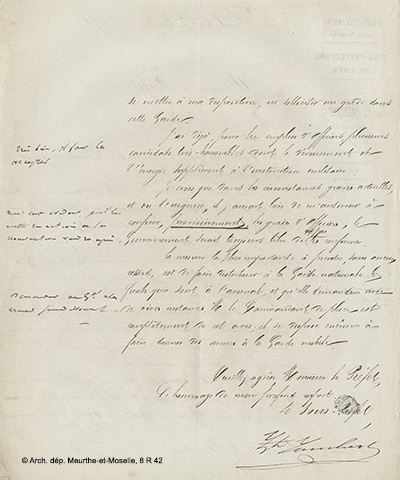 se mettre à ma disposition, ou solliciter un grade dans
cette Garde.
J'ai déjà, pour les emplois d'officiers plusieurs
candidats très honorables dont le dévouement et
l'énergie suppléeront à l'instruction militaire.
Je crois que dans les circonstances graves actuelles,
et vu l'urgence, il y aurait lieu de m'autoriser à
conférer, provisoirement, les grades d'officiers, le
gouvernement, serait toujours libre de les confirmer.
La mesure la plus importante à prendre, sans aucun
retard, est de faire distribuer à la Garde nationale les
fusils qui sont à l'arsenal, et qu'elle demande avec
de vives instances. M. le Commandant de place est
complètement de cet avis, et se dispose même à
faire donner des armes à la Garde mobile.
Veuillez agréer Monsieur le Préfet,
l'hommage de mon profond respect
le Sous-Préfet,
très bien, il faut les
accepter
Demander au Gal
© Arch. dép. Meurthe-et-Moselle, 8 R 42